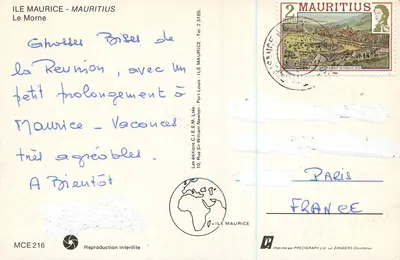 ILE MAURICE - MAURITIUS
Le Morne
Grosses Bises de
la Reunion, avec un
petit prolongement à
Maurice - Vacances
très agréables.
A Bientôt
MCE 216
Reproduction interdite
Les éditions C.I.E.E.M. Ltée.
10, Rue Sir William Newton - Port Louis - ILE MAURICE - Tel. 2 3185.
ILE MAURICE
MAURITIUS
PARIS
FRANCE